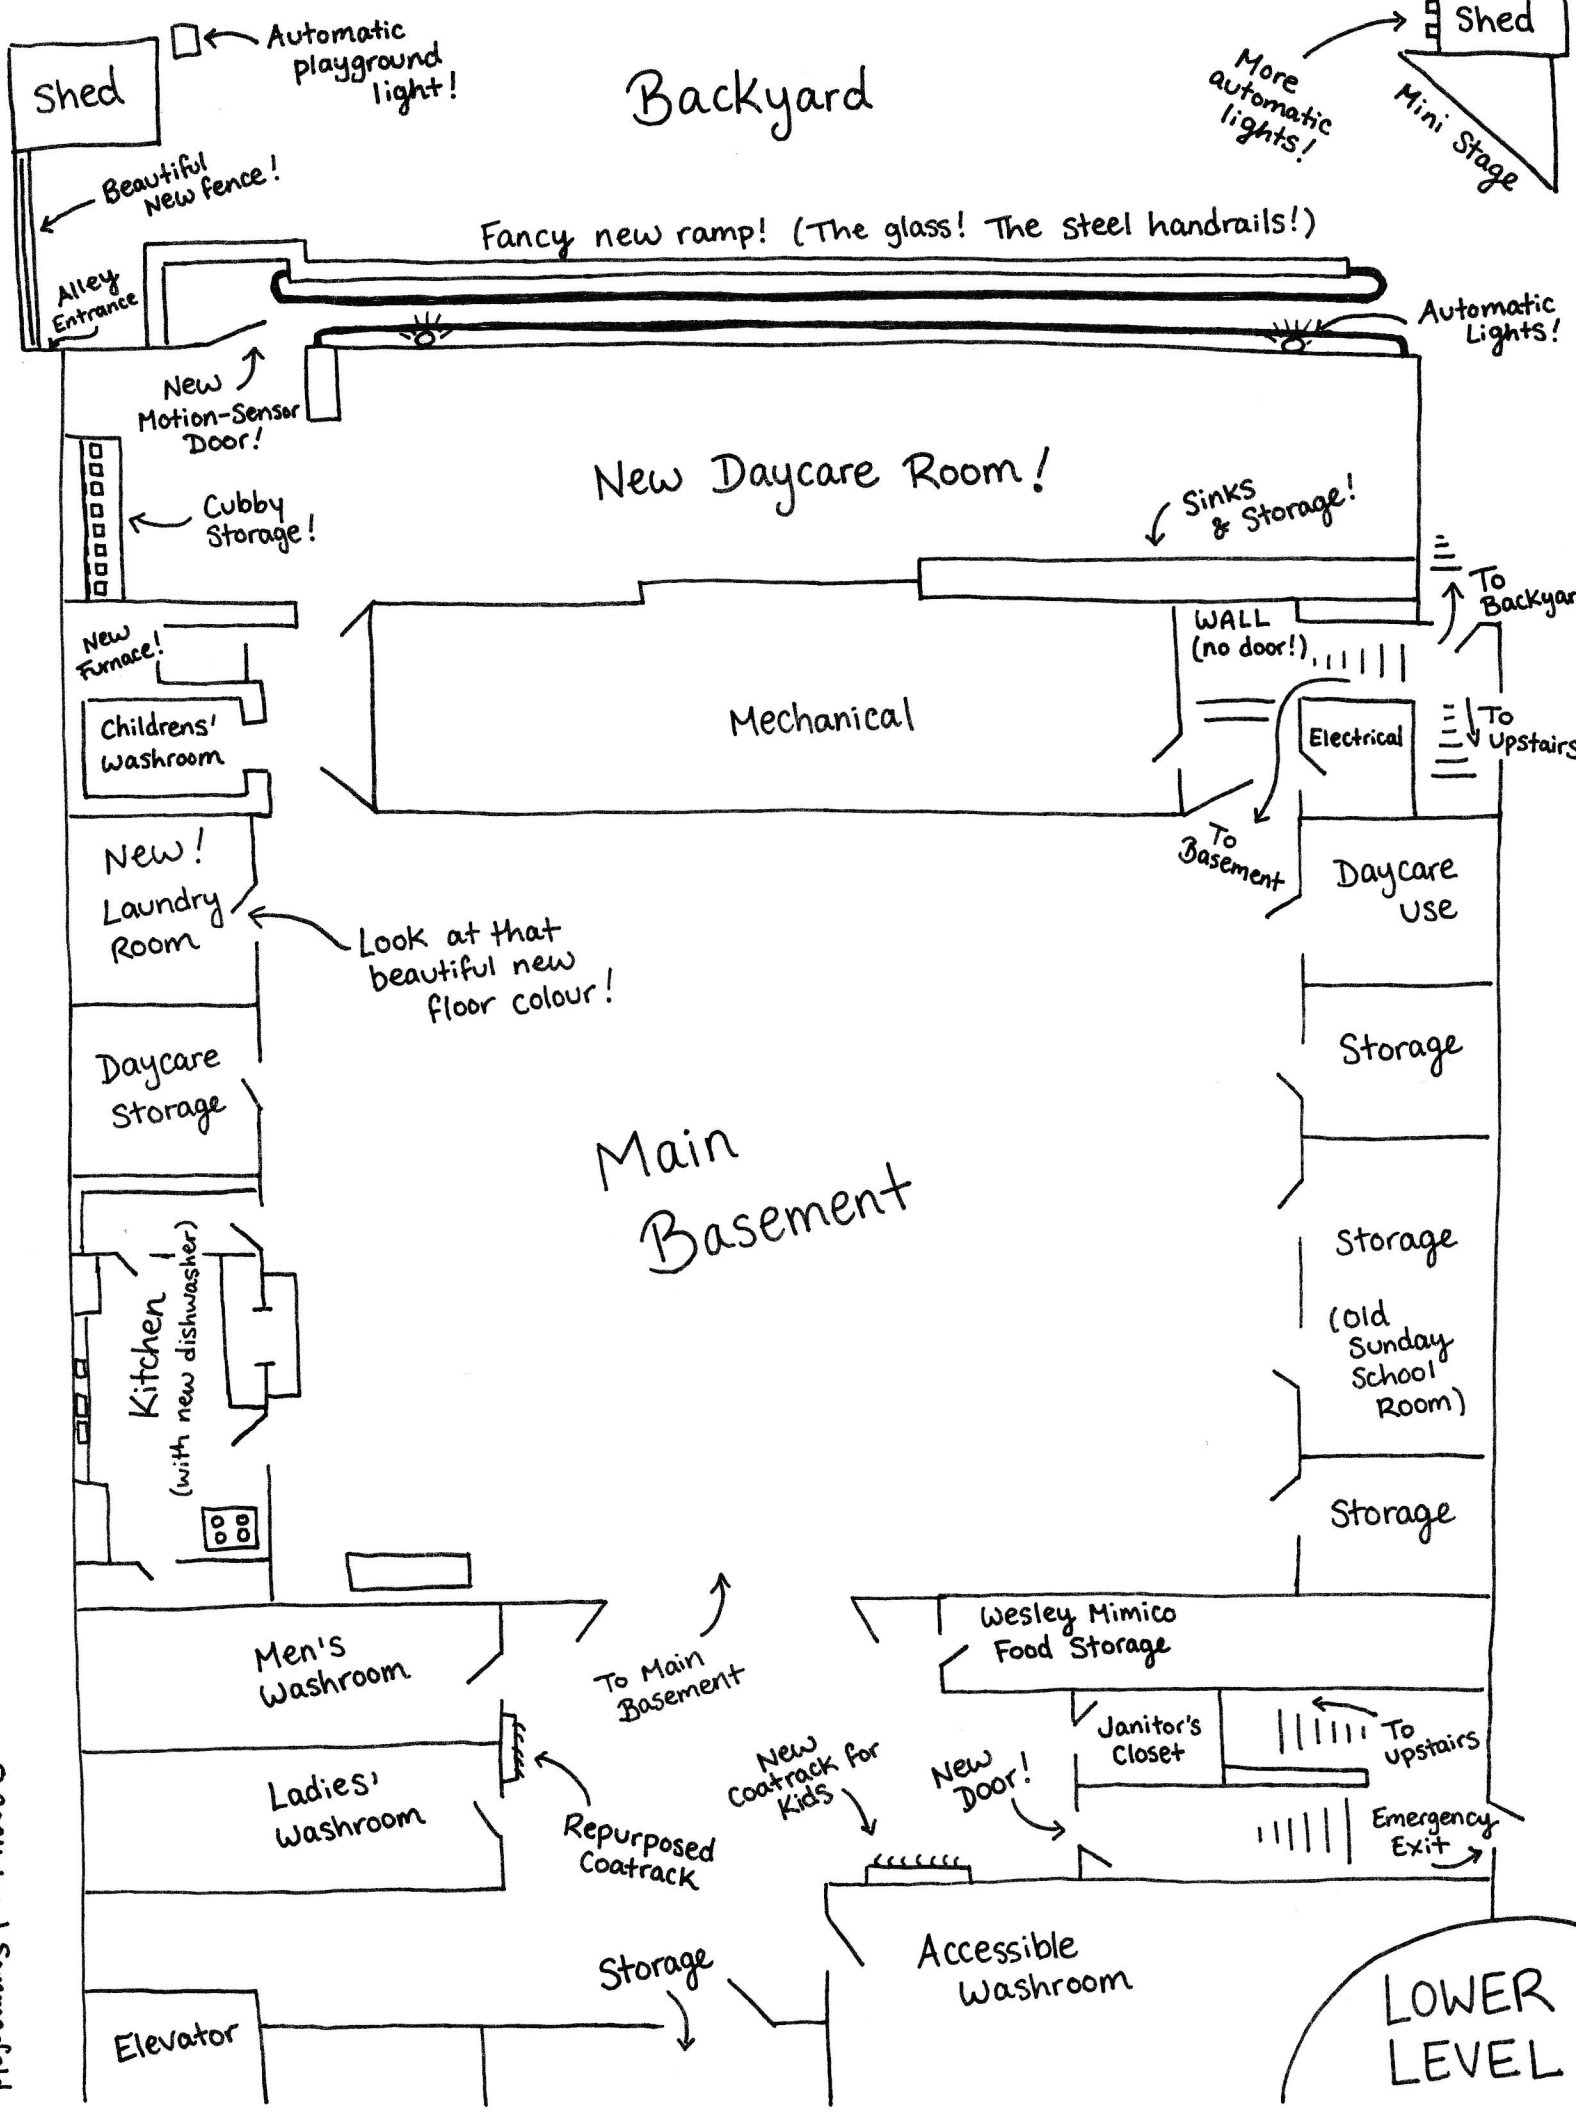 Automatic
playground
light!
Shed
Backyard
More
automatic
lights!
Shed
Mini Stage
Beautiful
New fence!
Fancy new ramp! (The glass! The steel handrails!)
Alley
Entrance
Automatic
Lights!
New
Motion-Sensor
Door!
New Daycare Room!
Cubby
Storage!
Sinks
& Storage!
To
New
Furnace!
WALL
(no door!)
Childrens'
washroom
Mechanical
Electrical
To
Upstairs
To
Basement
New!
Laundry
Room
Daycare
use
Look at that
beautiful new
floor colour!
Daycare
Storage
Storage
Main
Basement
Kitchen
(with new dishwasher)
Storage
(old
Sunday
School
Room)
Storage
Men's
Washroom
To Main
Basement
Wesley Mimico
Food Storage
Janitor's
Closet
To
upstairs
Ladies'
Washroom
Repurposed
Coatrack
New
Coatrack for
Kids
New
Door!
Emergency
Exit
Storage
Accessible
Washroom
Elevator
LOWER
LEVEL